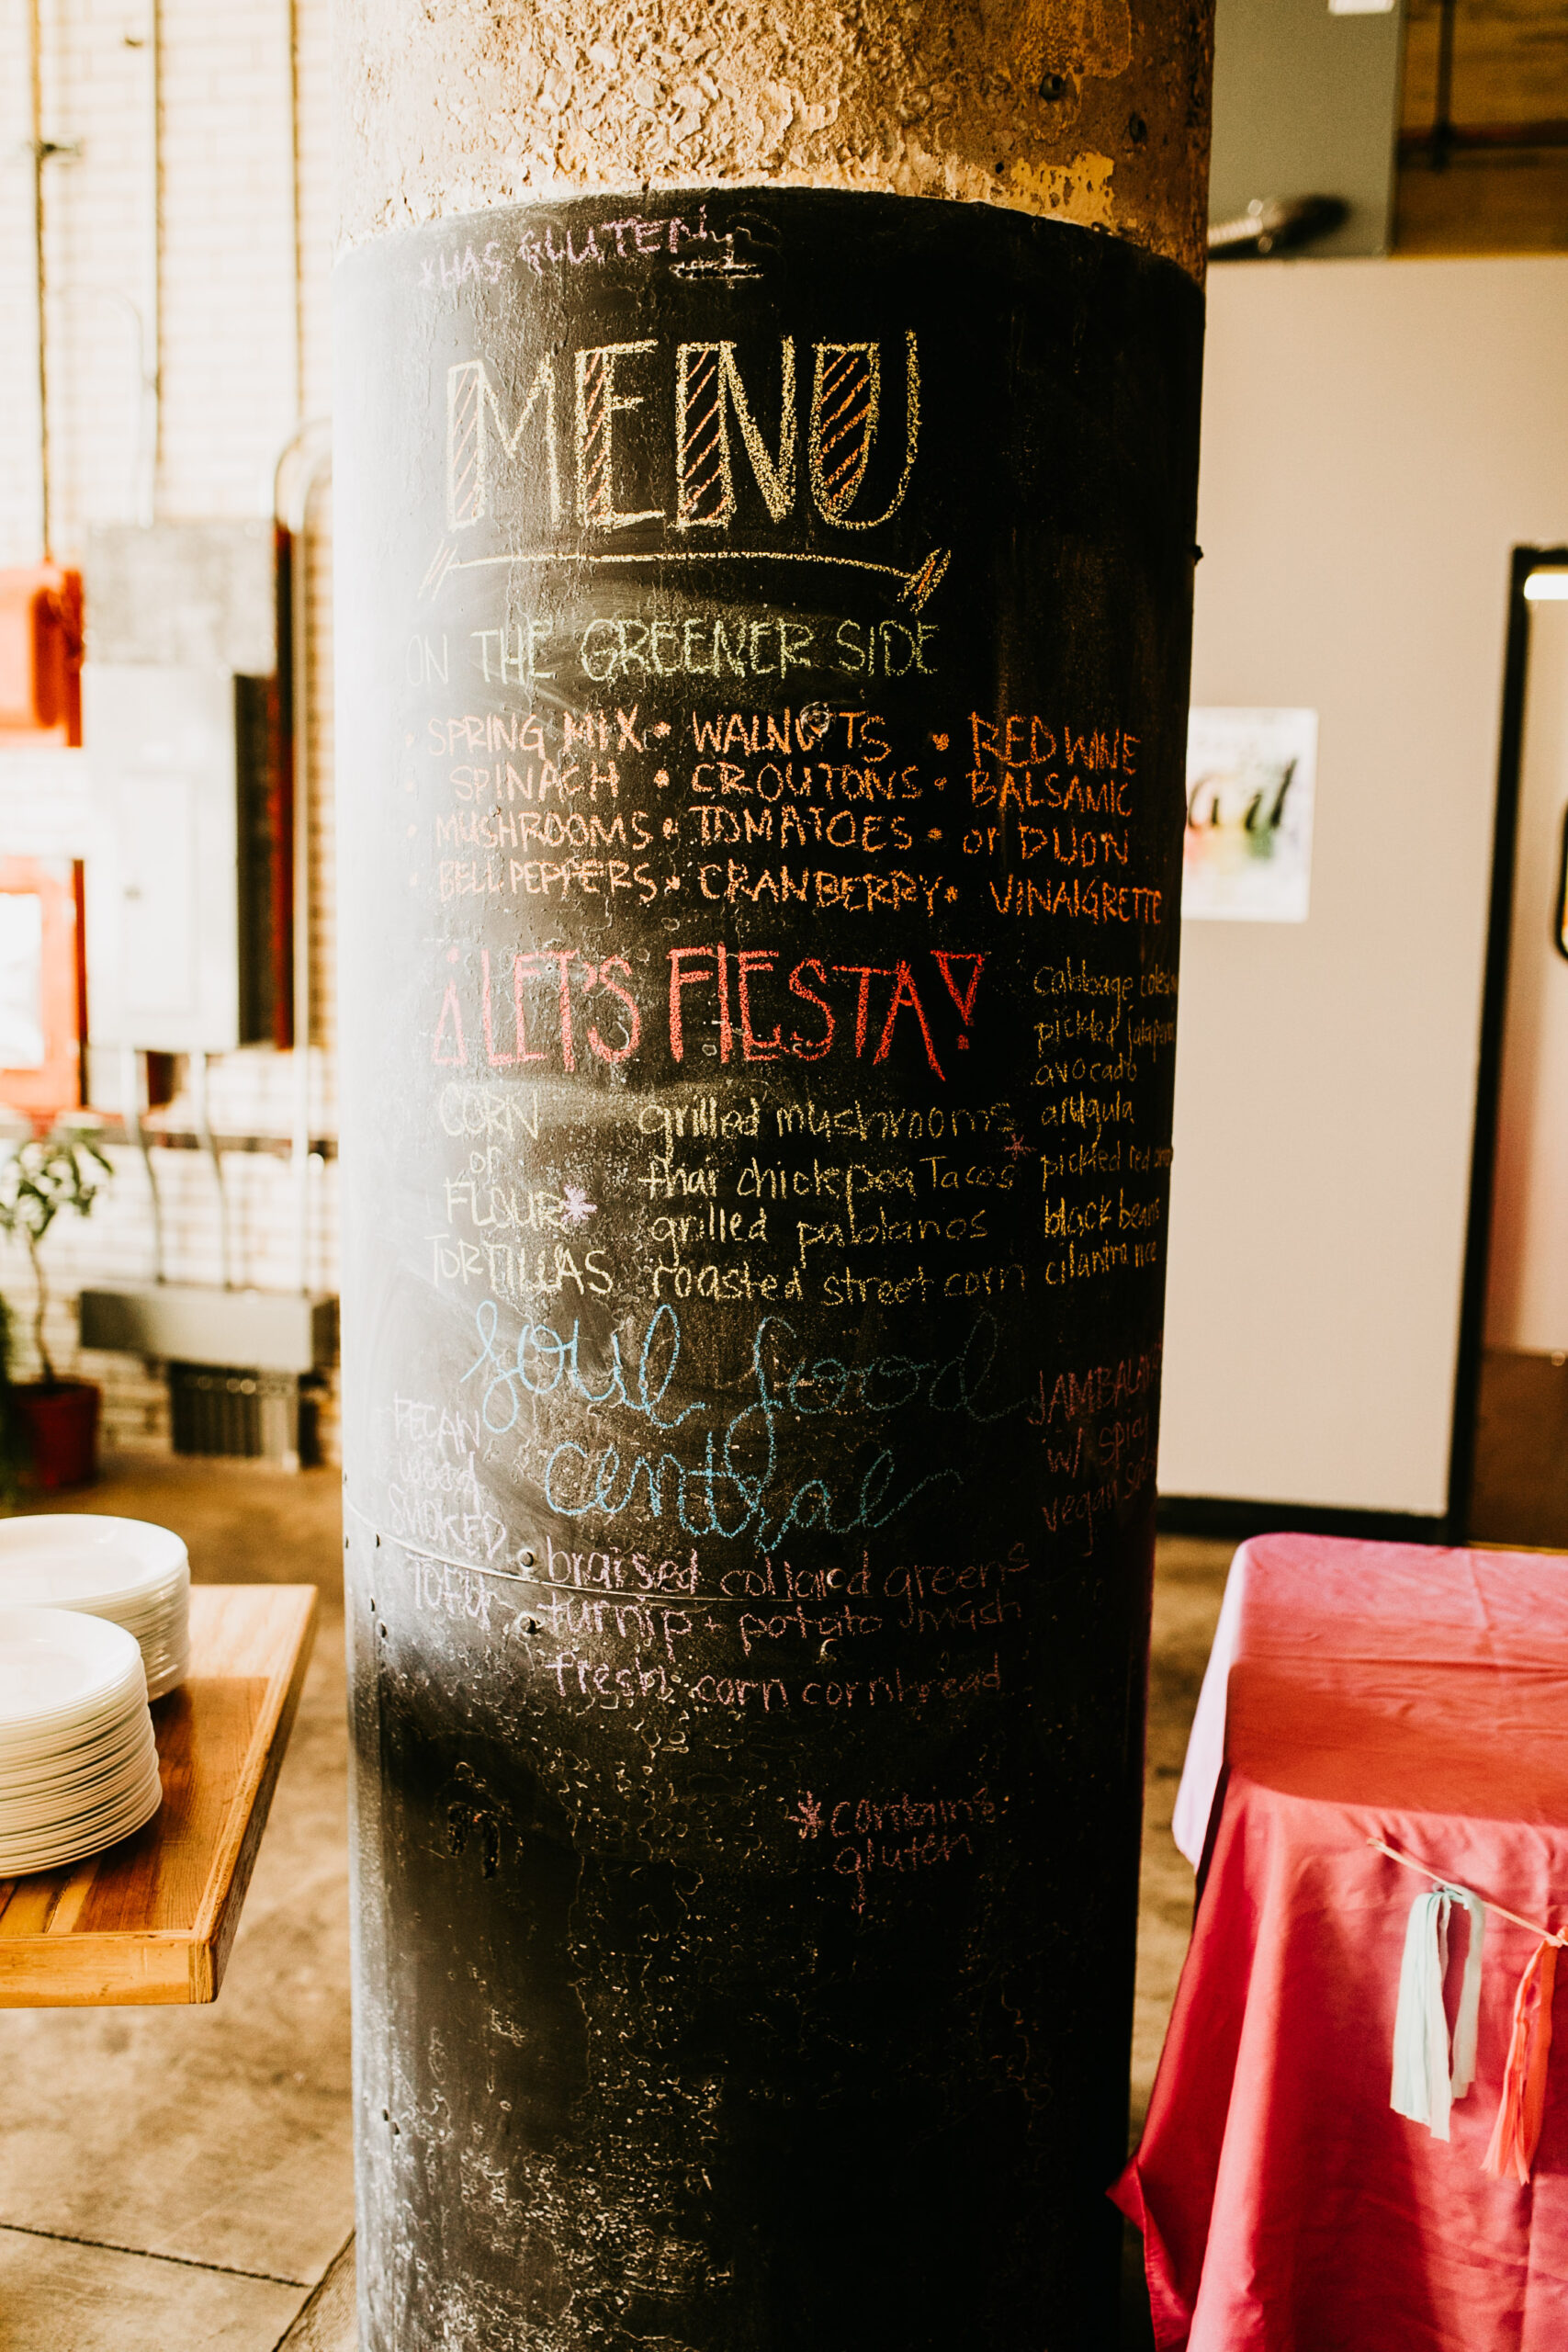 *HAS GLUTEN
MENU
ON THE GREENER SIDE
• SPRING MIX • WALNUTS • RED WINE
• SPINACH • CROUTONS • BALSAMIC
• MUSHROOMS • TOMATOES • or DIJON
• BELL PEPPERS • CRANBERRY • VINAIGRETTE
¡LET'S FIESTA!
CORN
or
FLOUR*
TORTILLAS
grilled mushrooms
thai chickpea Tacos*
grilled pablanos
roasted street corn
cabbage
pickled
avocado
arugula
pickled red
black beans
cilantro rice
soul food
central
PECAN
WOOD
SMOKED
TOFU
braised collard greens
turnip + potato mash
fresh corn cornbread
w/ spicy
vegan
*contains
gluten